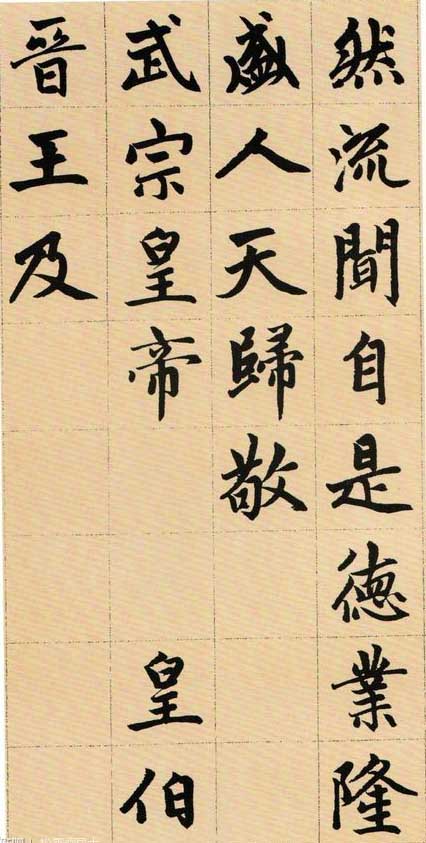 然流聞自是德業隆
盛人天歸敬
武宗皇帝　　皇伯
晉王及